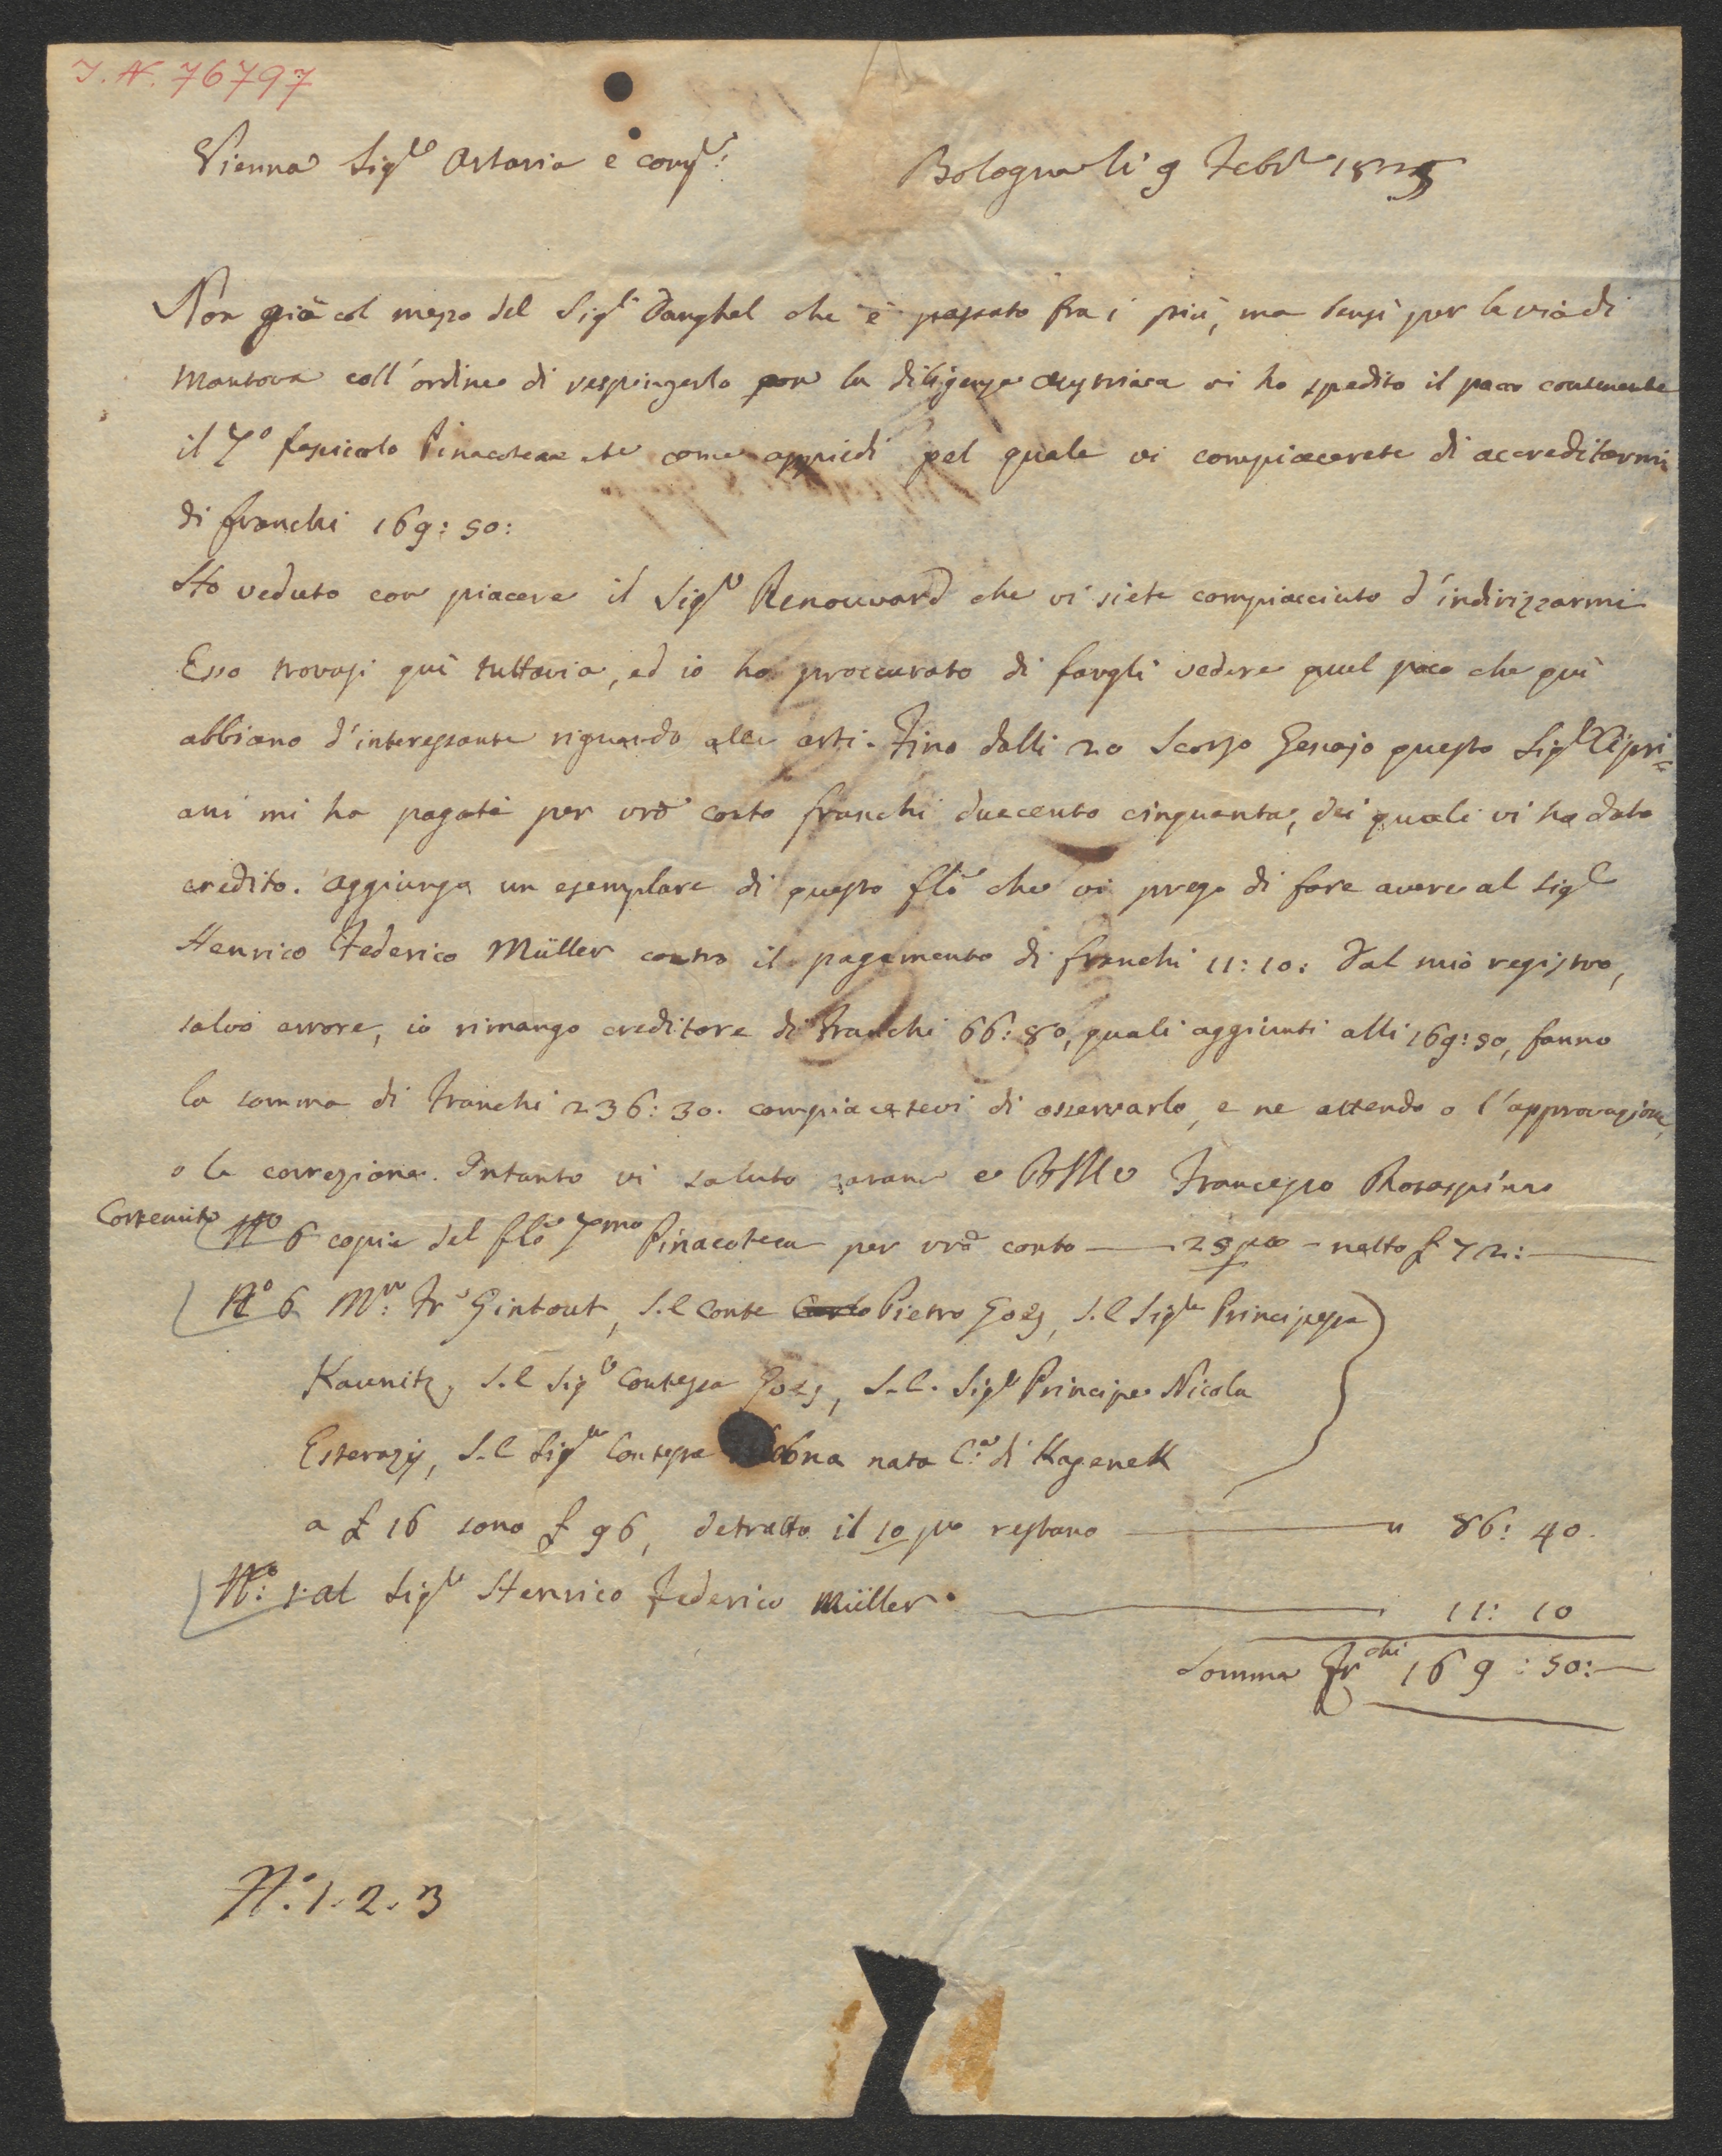 I. N. 76797
Vienna Sigri Artaria e comp:
Bologna li 9 Febro 1825
Non già col mezo del Sigr Danghel che è passato fra i più, ma bensì per la via di
Mantova coll'ordine di respingerlo per la diligenza ci ho spedito il paco contenente
il 7o fascicolo Pinacoteca etc come appiedi pel quale vi compiacerete di accreditarmi
di franchi 169: 50:
Ho veduto con piacere il Sigr Renouvard che vi siete compiacciuto d'indirizzarmi
Esso trovasi quì tuttavia, ed io ho proccurato di fargli vedere quel poco che quì
abbiamo d'interessante riguardo alle arti. Fino dalli 20 Scorso Genajo questo Sigr Cipri=
ani mi ha pagati per vro conto franchi duecento cinquanta, dei quali vi ho dato
credito. Aggiungo un esemplare di questo flo che vi prego di fare avere al sigr
Henrico Federico Müller contro il pagamento di franchi 11: 10: Dal mio registro,
salvo errore, io rimango creditore di franchi 66: 80, quali aggiunti alli 169: 50, fanno
la somma di franchi 236: 30. compiacetevi di osservarlo, e ne attendo o l'approvazione,
o la correzione. Intanto vi saluto e BLM Francesco Rosaspina
Contenuto No 6 copie del flo 7mo Pinacoteca per vro conto — 25 po - netto £ 72: —
No 6 Mr: Fr Gintout, S.E Conte Carlo Pietro Goes, S.E Sigra Principessa
Kaunitz, S.E Sigra Contessa Goes, S.E. Sigr Principe Nicola
Esterazij, S.E Sigra Contessa nata C.a di Kagenek
a £ 16 sono £ 96, detratto il 10 po restano — " 86: 40.
No: 1 al Sigr Henrico Federico Müller — 11: 10
Somma Frchi 169: 50: —
No. 1. 2. 3